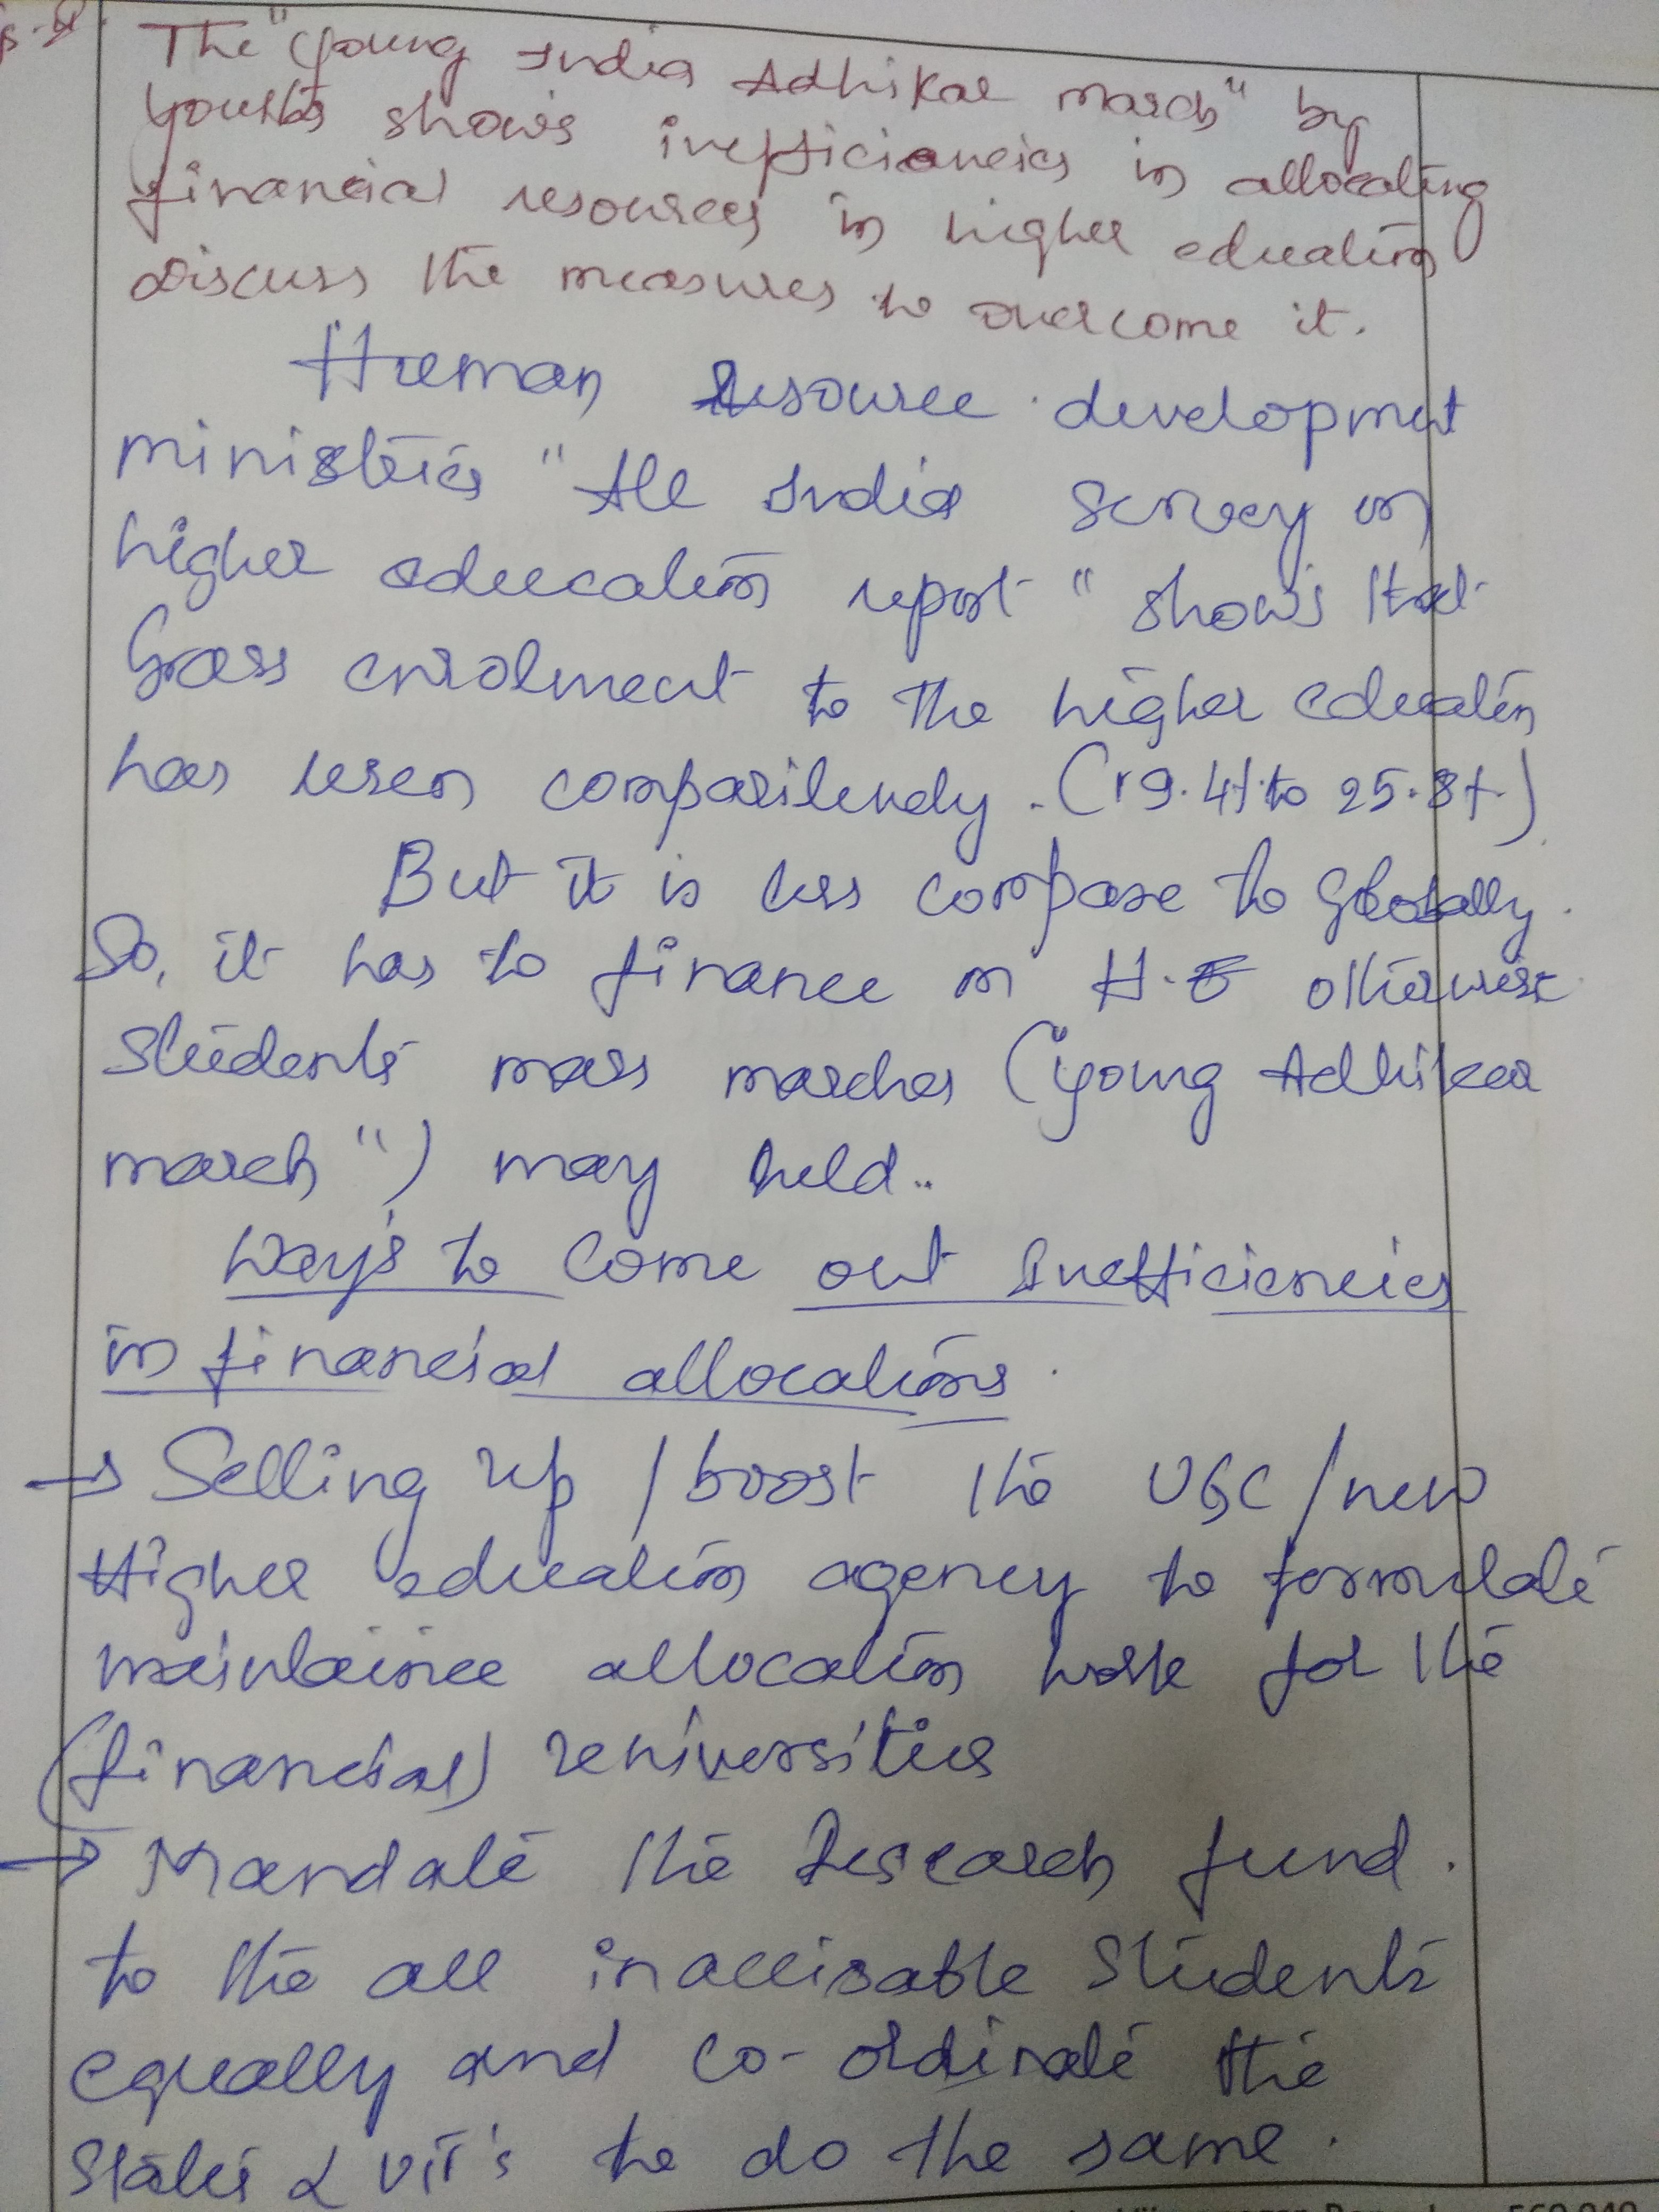 The "Young India Adhikar march" by
Youths shows inefficiancies in allocating
financial resources in higher education
Discuss the measures to overcome it.
Human Resource development
ministries "All India Survey on
higher education report" shows that
Gross enrolment to the higher education
has risen comparitively. (19.4% to 25.8%)
But it is less compare to globally.
So, it has to finance on H.E otherwise
Students mass marches ("young Adhikar
march") may held..
Ways to come out Inefficiencies
in financial allocations.
→ Setting up / boost the UGC / new
Higher education agency to formulate
maintaince allocation work for the
(financial) universities
→ Mandate the Research fund.
to the all inaccisable Students
equally and co-ordinate the
States & UT's to do the same.